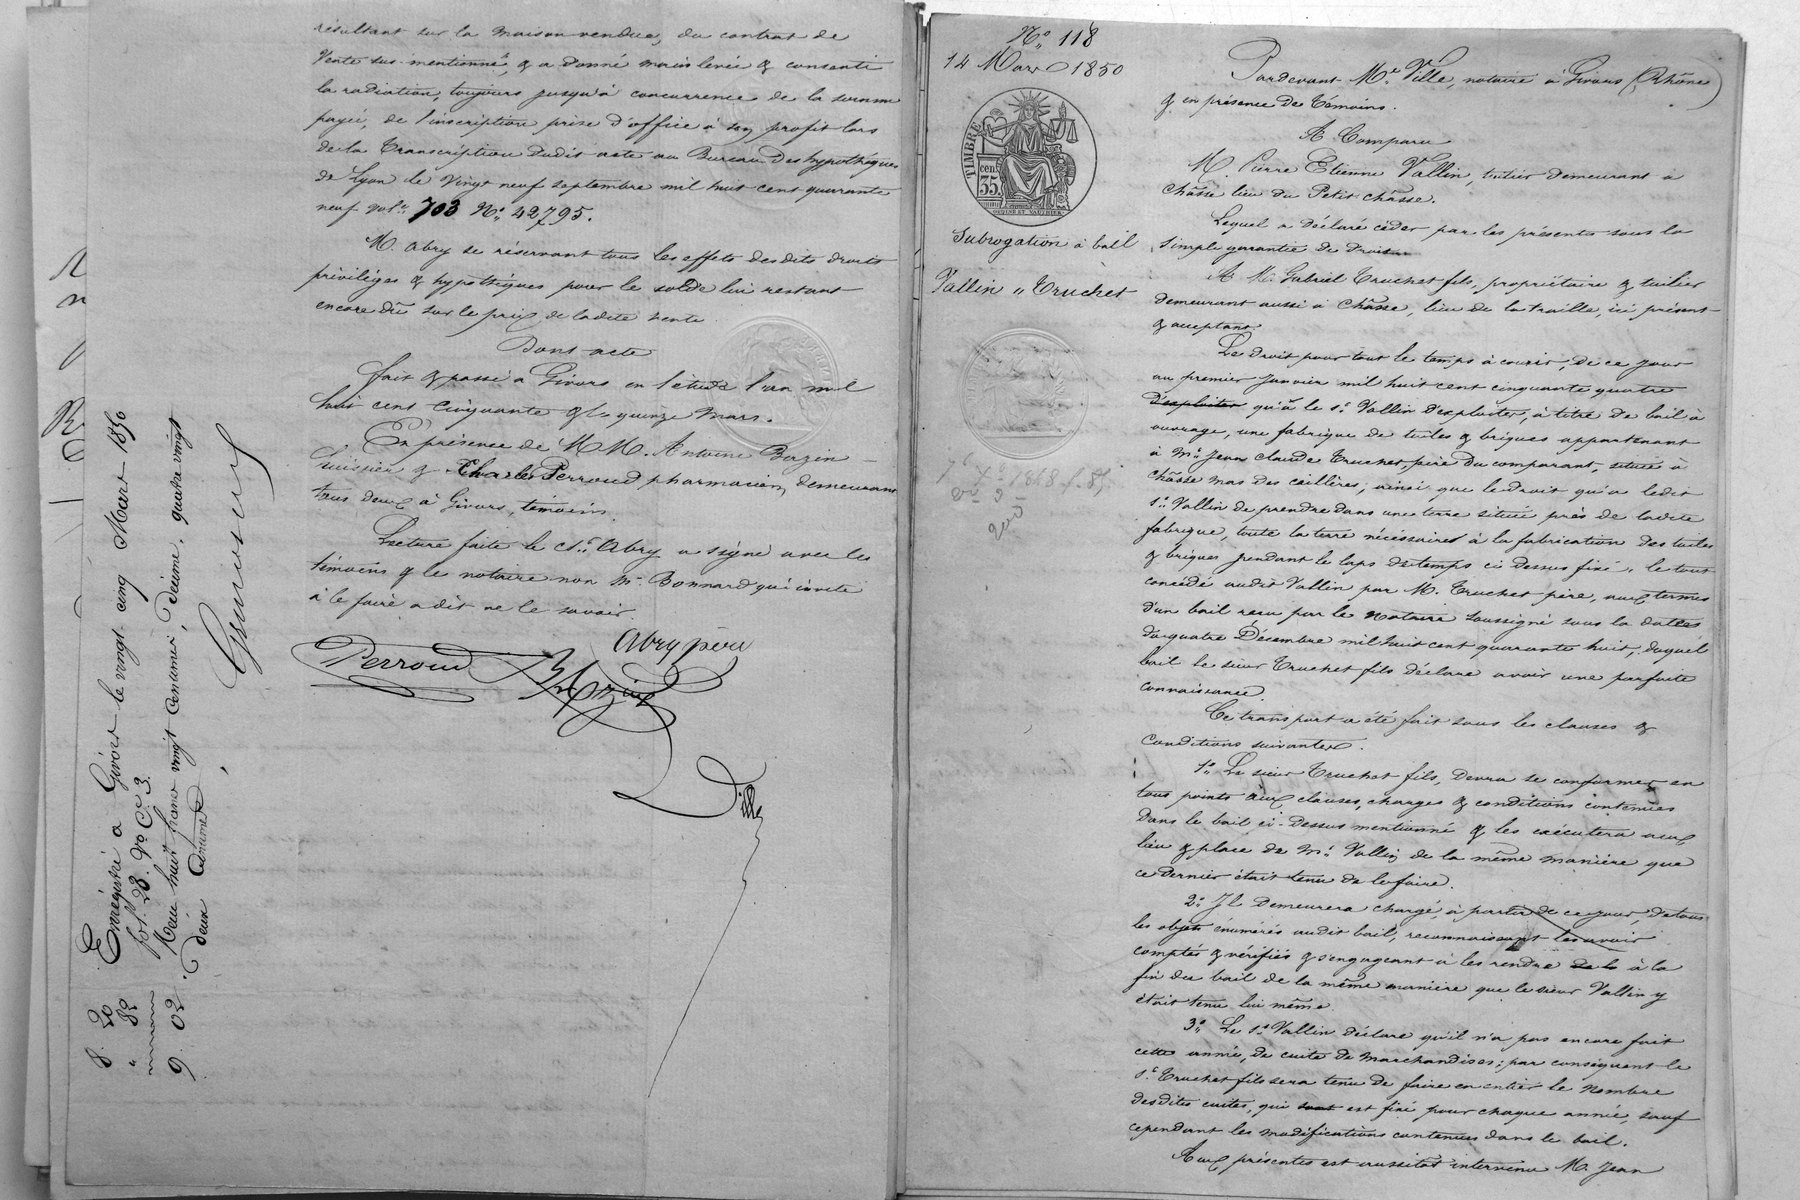 résultant sur la maison vendue, du contrat de
Vente sus-mentionné, & a donné main levée & consenti
la radiation, toujours jusqu'à concurrence de la somme
payée, de l'inscription prise d'office à son profit lors
de la transcription dudit acte au Bureau des hypothèques
de Lyon le vingt neuf septembre mil huit cent quarante
neuf vol. 703 N° 42795.
M. Abry se réservant tous les effets desdits droits
privilèges & hypothèques pour le solde lui restant
encore dû sur le prix de ladite vente
Dont acte
fait & passé à Givors en l'étude l'an mil
huit cent cinquante & le quinze mars.
En présence de MM. Antoine Bazin
huissier & Charles Perroud pharmacien, demeurant
tous deux à Givors, témoins.
Lecture faite le sr. Abry a signé avec les
témoins & le notaire non Mr. Bonnard qui invité
à le faire a dit ne le savoir.
Abry père
Perroud
Bazin
Ville
Enregistré à Givors le vingt cinq Mars 1850
fol. 23. V° C. 3.
Reçu huit francs vingt centimes, Décime, quatre vingt
deux centimes
8. 20
" 82
9. 02
N° 118
14 Mars 1850
TIMBRE
35 cen.
Subrogation à bail
Vallin " Truchet
Pardevant Me. Ville, notaire à Givors (Rhône)
& en présence de Témoins.
A Comparu
M. Pierre Etienne Vallin, tuilier demeurant à
Châsse lieu du Petit Châsse.
Lequel a déclaré céder par les présentes sous la
simple garantie de droit
A M. Gabriel Truchet fils, propriétaire & tuilier
demeurant aussi à Châsse, lieu de la traille, ici présent
& acceptant
Le droit pour tout le temps à courir, de ce jour
au premier Janvier mil huit cent cinquante quatre
d'exploiter qu'à le sr. Vallin d'exploiter, à titre de bail à
ouvrage, une fabrique de tuiles & briques appartenant
à Mr. Jean Claude Truchet, père du comparant, située à
Châsse mas des caillères; ainsi que le droit qu'a ledit
sr. Vallin de prendre dans une terre située près de ladite
fabrique, toute la terre nécessaire à la fabrication des tuiles
& briques pendant le laps de temps ci dessus fixé. le tout
concédé audit Vallin par M. Truchet père, aux termes
d'un bail reçu par le Notaire soussigné sous la date
du quatre Décembre mil huit cent quarante huit, duquel
bail le sieur Truchet fils déclare avoir une parfaite
connaissance.
Ce transport a été fait sous les clauses &
conditions suivantes.
1° Le sieur Truchet fils, devra se conformer en
tous points aux clauses, charges & conditions contenues
dans le bail ci-dessus mentionné & les exécutera aux
lieu & place de Mr. Vallin de la même manière que
ce dernier était tenu de le faire.
2° Il demeurera chargé, à partir de ce jour, de tous
les objets énumérés audit bail, reconnaissant les avoir
comptés & vérifiés & s'engageant à les rendre de la à la
fin du bail de la même manière que le sieur Vallin y
était tenu lui même
3° Le sr. Vallin déclare qu'il n'a pas encore fait
cette année, de cuite de marchandises; par conséquent le
sr. Truchet fils sera tenu de faire en entier le nombre
desdites cuites, qui sont est fixé pour chaque année, sauf
cependant les modifications contenues dans le bail.
Aux présentes est aussitôt intervenu M. Jean